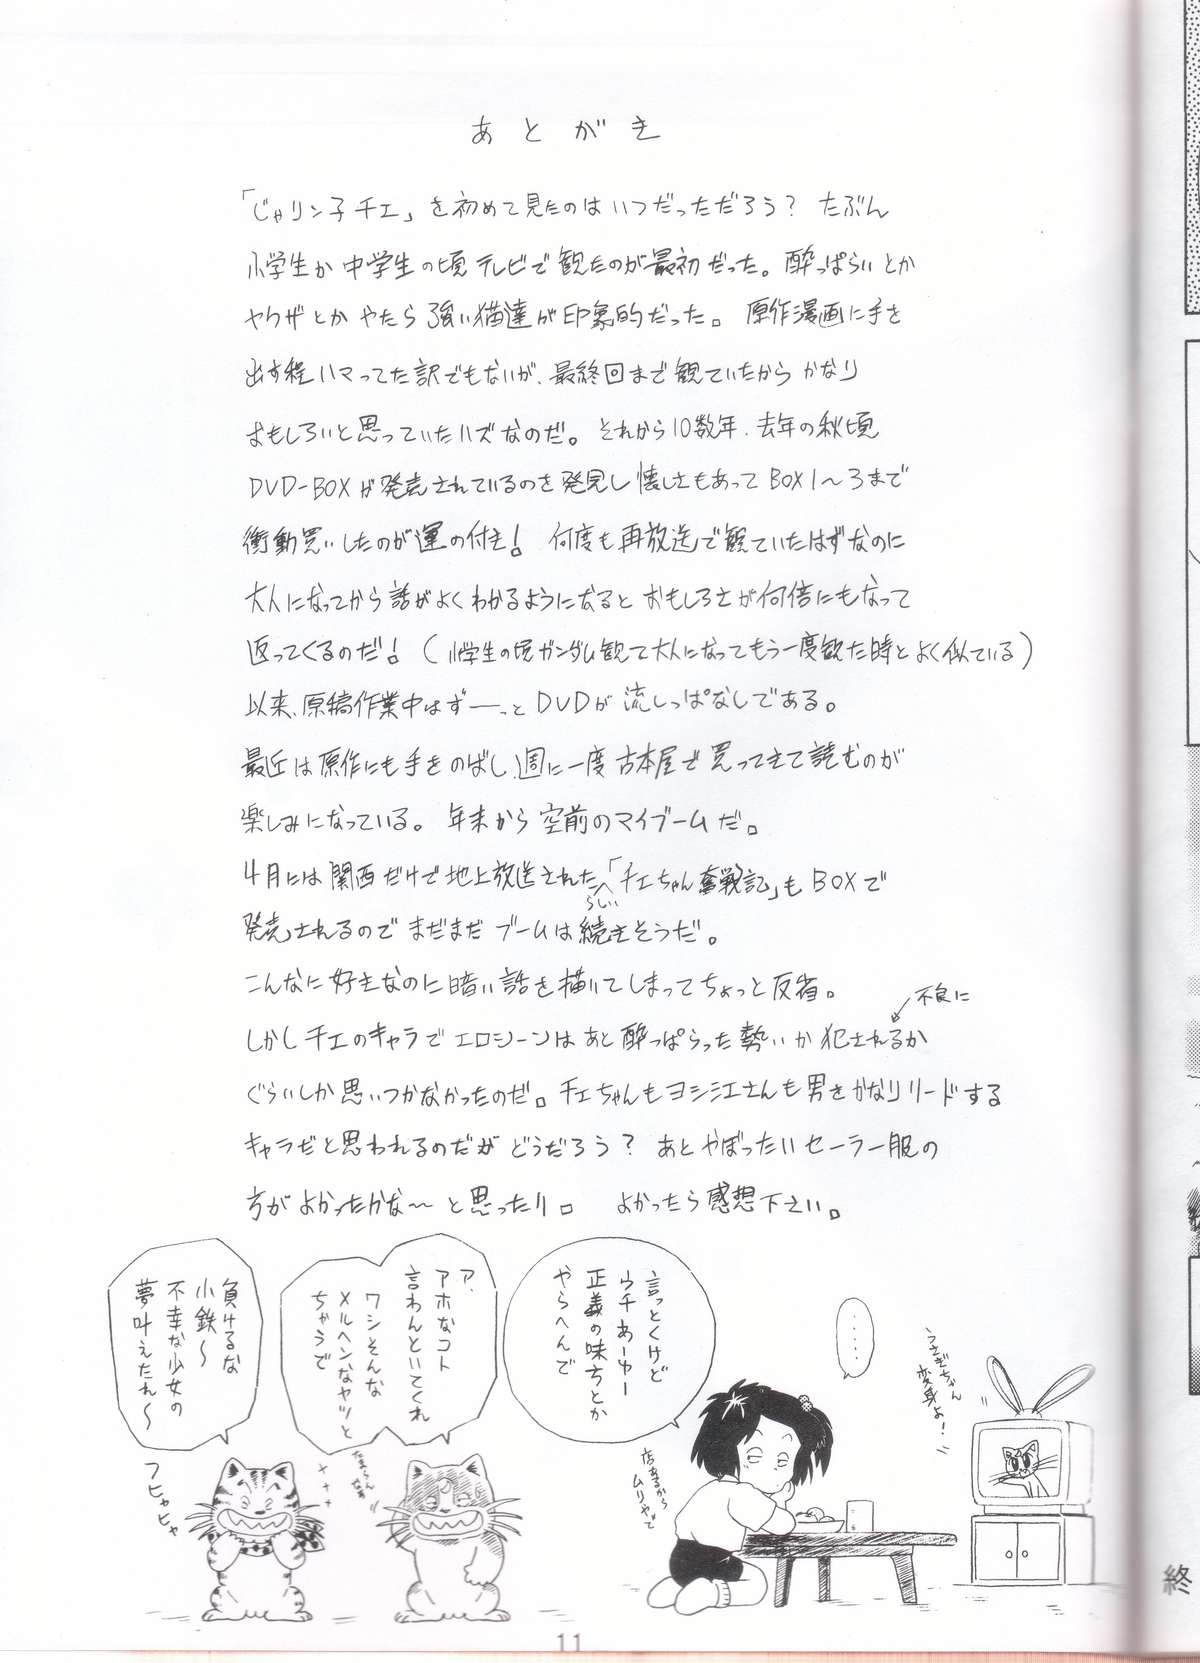 あとがき
「じゃリン子チエ」を初めて見たのはいつだっただろう？ たぶん
小学生か中学生の頃テレビで観たのが最初だった。酔っぱらいとか
ヤクザとかやたら強い猫達が印象的だった。 原作漫画に手を
出す程ハマってた訳でもないが、最終回まで観ていたからかなり
おもしろいと思っていたハズなのだ。それから10数年、去年の秋頃
DVD-BOXが発売されているのを発見し懐しさもあってBOX1～3まで
衝動買いしたのが運の付き！ 何度も再放送で観ていたはずなのに
大人になってから話がよくわかるようになるとおもしろさが何倍にもなって
返ってくるのだ！（小学生の頃ガンダム観て大人になってもう一度観た時とよく似ている）
以来、原稿作業中はずーーっとDVDが流しっぱなしである。
最近は原作にも手をのばし、週に一度古本屋で買ってきて読むのが
楽しみになっている。年末から空前のマイブームだ。
4月には関西だけで地上放送されたらしい「チエちゃん奮戦記」もBOXで
発売されるのでまだまだブームは続きそうだ。
こんなに好きなのに暗い話を描いてしまってちょっと反省。
しかしチエのキャラでエロシーンはあと酔っぱらった勢いか不良に犯されるか
ぐらいしか思いつかなかったのだ。チエちゃんもヨシ江さんも男をかなりリードする
キャラだと思われるのだがどうだろう？ あとやぼったいセーラー服の
方がよかったかな～と思ったり。 よかったら感想下さい。
うさぎちゃん
変身よ！
……
言っとくけど
ウチあーゆー
正義の味方とか
やらへんで
店あるから
ムリやで
ア、
アホなコト
言わんといてくれ
ワシそんな
メルヘンなヤツと
ちゃうで
たまらんなぁ
負けるな
小鉄～
不幸な少女の
夢叶えたれ～
フヒャヒャ
11
終